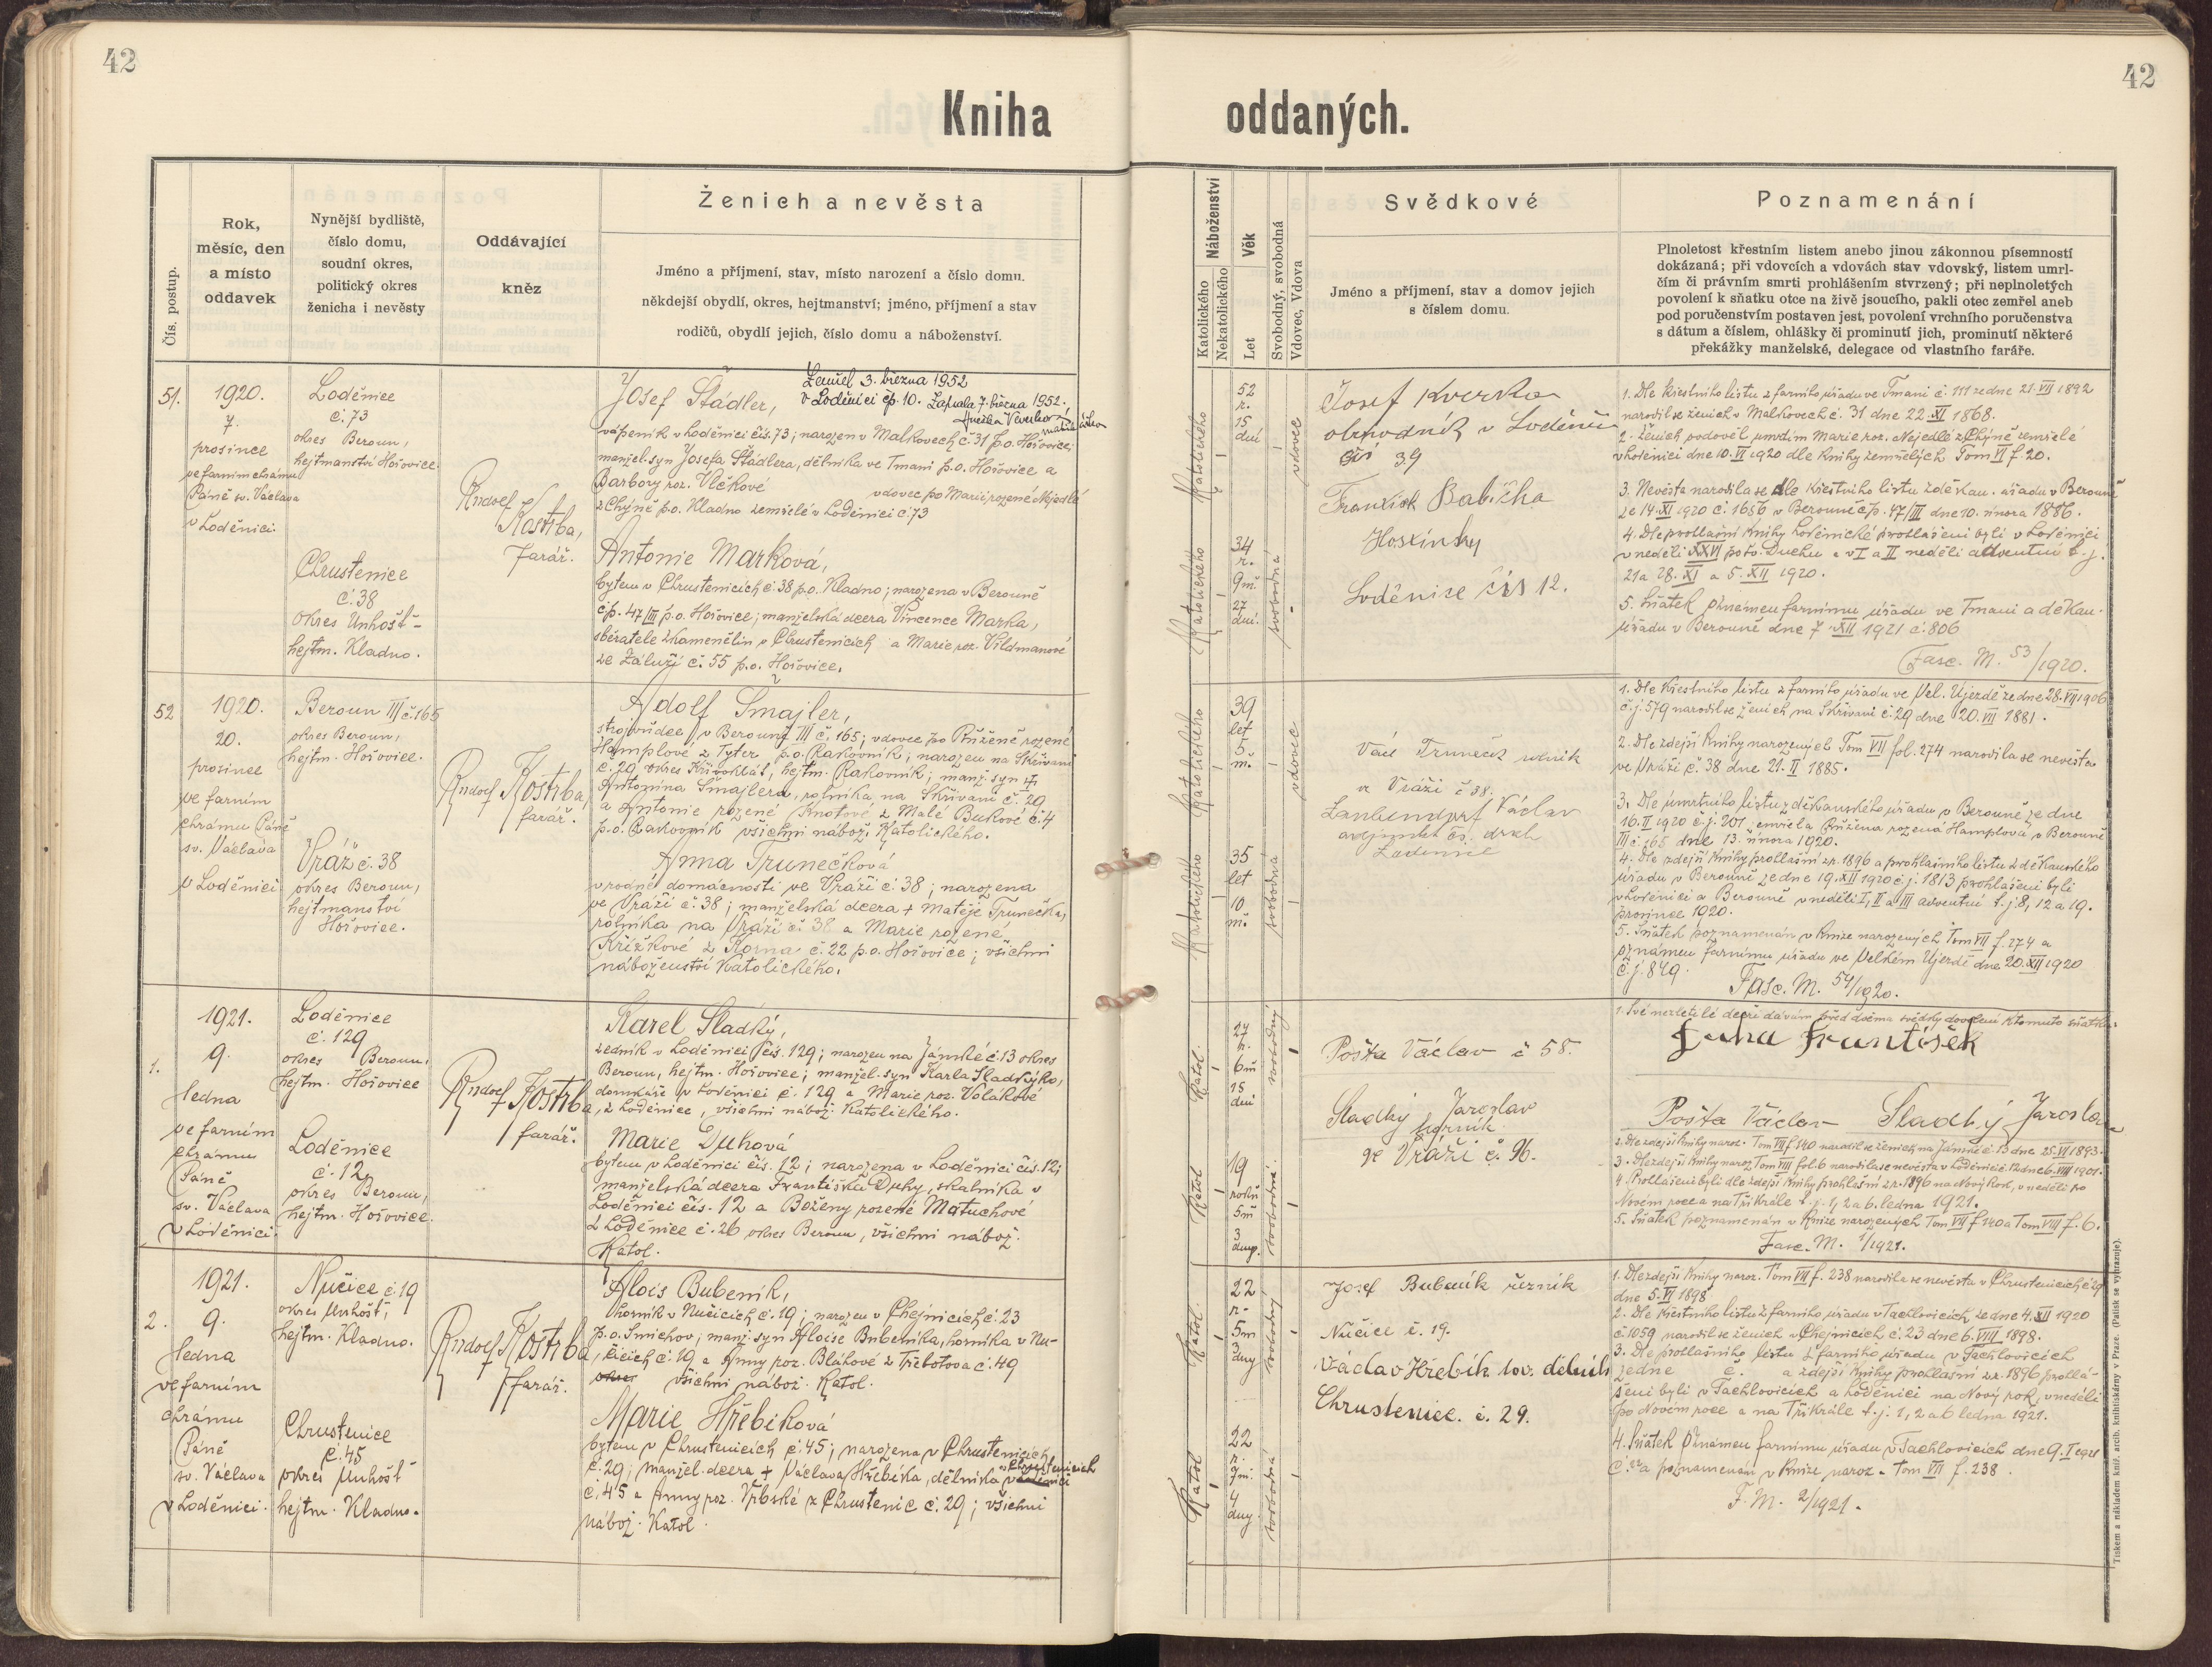 42
42
Kniha oddaných.
Čís. postup.
Rok,
měsíc, den
a místo
oddavek
Nynější bydliště,
číslo domu,
soudní okres,
politický okres
ženicha i nevěsty
Oddávající
kněz
Ženich a nevěsta
Jméno a příjmení, stav, místo narození a číslo domu.
někdejší obydlí, okres, hejtmanství; jméno, příjmení a stav
rodičů, obydlí jejich, číslo domu a náboženství.
Náboženství
Katolického
Nekatolického
Věk
Let
Svobodný, svobodná
Vdovec, Vdova
Svědkové
Jméno a příjmení, stav a domov jejich
s číslem domu.
Poznamenání
Plnoletost křestním listem anebo jinou zákonnou písemností
dokázaná; při vdovcích a vdovách stav vdovský, listem umrl-
čím či právním smrti prohlášením stvrzený; při neplnoletých
povolení k sňatku otce na živě jsoucího, pakli otec zemřel aneb
pod poručenstvím postaven jest, povolení vrchního poručenstva
s dátum a číslem, ohlášky či prominutí jich, prominutí některé
překážky manželské, delegace od vlastního faráře.
51.
1920.
7.
prosince
ve farním chrámu
Páně sv. Václava
v Loděnici.
Loděnice
č. 73
okres Beroun,
hejtmanství Hořovice.
Chrustenice
č. 38
okres Unhošť-
hejtm. Kladno.
Rudolf
Kostrba,
farář.
Josef Štádler,
Zemřel 3. března 1952
v Loděnici čp. 10. Zapsala 7. března 1952.
vápeník v Loděnici čís. 73; narozen v Malkovech č. 31 p.o. Hořovice;
manžel. syn Josefa Štádlera, dělníka ve Tmani p.o. Hořovice a
Barbory roz. Vlčkové
vdovec po Marii, rozené Nejedlé
z Chýně p.o. Kladno zemřelé v Loděnici č. 73
Antonie Marková,
bytem v Chrustenicích č. 38 p.o. Kladno; narozena v Berouně
čp. 47/III p.o. Hořovice; manželská dcera Vincence Marka,
sběratele zkamenělin v Chrustenicích a Marie roz. Vildmanové
ze Záluží č. 55 p.o. Hořovice.
Katolického
52
r.
15
dní
vdovec
Katolického
34
r.
9 m.
27
dní.
svobodná
Josef Kverka
obchodník v Loděnici
čís 39
František Babička
Hostinský
Loděnice čís 12.
1. Dle křestního listu z farního úřadu ve Tmani č. 111 ze dne 21. VII 1892
narodil se ženich v Malkovech č. 31 dne 22. XI 1868.
2. Ženich ovdověl úmrtím Marie roz. Nejedlé z Chýně zemřelé
v Loděnici dne 10. VI 1920 dle knihy zemřelých Tom VI f. 20.
3. Nevěsta narodila se dle křestního listu z děkan. úřadu v Berouně
ze 14. XI 1920 č. 1656 v Berouně čp. 47/III dne 10. února 1886.
4. Dle prohlašní knihy Loděnické prohlášeni byli v Loděnici
v neděli XXVI po sv. Duchu a v I a II neděli adventní t. j.
21 a 28. XI a 5. XII 1920.
5. Sňatek oznámen farnímu úřadu ve Tmani a děkan.
úřadu v Berouně dne 7. XII 1921 č. 806
Fasc. M. 53/1920.
52
1920.
20.
prosince
ve farním
chrámu Páně
sv. Václava
v Loděnici
Beroun III č. 165
okres Beroun,
hejtm. Hořovice.
Vráž č. 38
okres Beroun,
hejtmanství
Hořovice.
Rudolf Kostrba,
farář.
Adolf Šmajler,
strojvůdce v Berouně III č. 165; vdovec po Růženě rozené
Hamplové z Tyter p.o. Rakovník, narozen na Skřivani
č. 29 okres Křivoklát, hejtm. Rakovník; manž. syn †
Antonína Šmajlera, rolníka na Skřivani č. 29
a Antonie rozené Knotové z Malé Bukové č. 4
p.o. Rakovník všichni nábož. katolického.
Anna Trunečková
v rodné domácnosti ve Vráži č. 38; narozena
ve Vráži č. 38; manželská dcera † Matěje Trunečka,
rolníka na Vráži č. 38 a Marie rozené
Křížkové z Korna č. 22 p.o. Hořovice; všichni
náboženství katolického.
Katolického
39
let
5
m.
vdovec
Katolického
35
let
10
m.
svobodná
Václ Truneček rolník
ve Vráži č 38.
Václav
Loděnice
1. Dle křestního listu z farního úřadu ve Vel. Újezdě ze dne 28. VII 1906
č. j. 579 narodil se ženich na Skřivani č. 29 dne 20. VII 1881.
2. Dle zdejší knihy narozených Tom VII fol. 274 narodila se nevěsta
ve Vráži č. 38 dne 21. II 1885.
3. Dle úmrtního listu z děkanského úřadu v Berouně ze dne
16. II 1920 č. j. 201 zemřela Růžena rozená Hamplová v Berouně
III č. 165 dne 13. února 1920.
4. Dle zdejší knihy prohlašní z r. 1896 a prohlašního listu z děkanského
úřadu v Berouně ze dne 19. XII 1920 č. j. 1813 prohlášeni byli
v Loděnici a Berouně v neděli I, II a III adventní t. j. 8, 12 a 19.
prosince 1920.
5. Sňatek poznamenán v knize narozených Tom VII f. 274 a
oznámen farnímu úřadu ve Velkém Újezdě dne 20. XII 1920
č. j. 849.
Fasc. M. 54/1920.
1.
1921.
9.
ledna
ve farním
chrámu
Páně
sv. Václava
v Loděnici.
Loděnice
č. 129
okres Beroun,
hejtm. Hořovice
Loděnice
č. 12,
okres Beroun,
hejtm. Hořovice.
Rudolf Kostrba,
farář.
Karel Sladký,
zedník v Loděnici čís. 129; narozen na Jánské č. 13 okres
Beroun, hejtm. Hořovice; manžel. syn Karla Sladkýho,
domkáře v Loděnici č. 129 a Marie roz. Volákové
z Loděnice, všichni nábož. katolického.
Marie Duhová
bytem v Loděnici čís. 12; narozena v Loděnici čís. 12;
manželská dcera Františka Duhy, skalníka v
Loděnici čís. 12 a Boženy rozené Matuchové
z Loděnice č. 26 okres Beroun, všichni nábož.
katol.
Katol.
27
r.
6 m
15
dní
svobodný
Katol
19
roků
5 m
3
dny.
svobodná.
Pošta Václav č 58.
Sladký Jaroslav
horník
ve Vráži č. 96.
1. Své nezletilé dceři dávám před dvěma svědky dovolení k tomuto sňatku:
Duha František
Pošta Václav Sladký Jaroslav
2. Dle zdejší knihy naroz. Tom VII f. 140 narodil se ženich na Jánské č. 13 dne 25. VI 1893.
3. Dle zdejší knihy naroz. Tom VIII fol. 6 narodila se nevěsta v Loděnici č. 12 dne 6. VIII 1901.
4. Prohlášeni byli dle zdejší knihy prohlašní z r. 1896 na Nový rok, v neděli po
Novém roce a na Tři krále t. j. 1, 2 a 6. ledna 1921.
5. Sňatek poznamenán v knize narozených Tom VII f 140 a Tom VIII f. 6.
Fasc. M. 1/1921.
2.
1921.
9.
ledna
ve farním
chrámu
Páně
sv. Václava
v Loděnici.
Nučice č. 19
okres Unhošť,
hejtm. Kladno.
Chrustenice
č. 45
okres Unhošť
hejtm. Kladno.
Rudolf Kostrba,
farář.
Alois Bubeník,
horník v Nučicích č. 19; narozen v Chejnicích č. 23
p.o. Smíchov; manž. syn Aloise Bubeníka, horníka v Nu-
čicích č. 19 a Anny roz. Bláhové z Třebotova č. 49
všichni nábož. katol.
Marie Hřebíková
bytem v Chrustenicích č. 45; narozena v Chrustenicích
č. 29; manžel. dcera † Václava Hřebíka, dělníka v Chrustenicích
č. 45 a Anny roz. Vrbské z Chrustenic č. 29; všichni
nábož. katol.
Katol.
22
r.
5 m.
3
dny
svobodný
Katol
22
r.
7 m.
4
dny.
svobodná
Josef Bubeník řezník
Nučice č. 19.
Václav Hřebík tov. dělník
Chrustenice. č. 29.
1. Dle zdejší knihy naroz. Tom VII f. 238 narodila se nevěsta v Chrustenicích č. 29
dne 5. VI 1898
2. Dle křestního listu z farního úřadu v Tachlovicích ze dne 4. XII 1920
č. 1059 narodil se ženich v Chejnicích č. 23 dne 6. VIII 1898.
3. Dle prohlašního listu z farního úřadu v Tachlovicích
ze dne č. a zdejší knihy prohlašní z r. 1896 prohlá-
šeni byli v Tachlovicích a Loděnici na Nový rok, v neděli
po Novém roce a na Tři krále t. j. 1, 2 a 6 ledna 1921.
4. Sňatek oznámen farnímu úřadu v Tachlovicích dne 9. I 1921
a poznamenán v knize naroz. Tom VII f. 238.
F. M. 2/1921.
Tiskem a nákladem kníž. arcib. knihtiskárny v Praze. (Patisk se vyhrazuje).